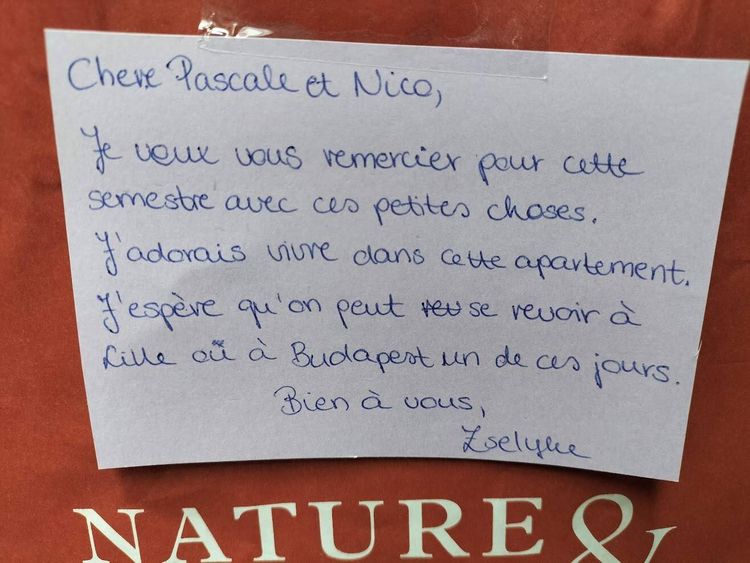 Chere Pascale et Nico,
Je veux vous remercier pour cette
semestre avec ces petites choses.
J'adorais vivre dans cette apartement.
J'espère qu'on peut se revoir à
Lille où à Budapest un de ces jours.
Bien à vous,
Zselyke
NATURE &